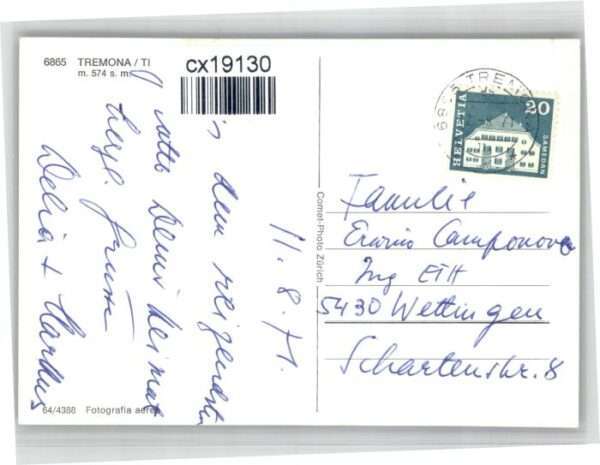 6865 TREMONA / TI
m. 574 s. m.
cx19130
11. 8. 71.
dem
Deiner Heimat
herzl.
Delia + Markus
64/4388 Fotografia aerea
Comet-Photo Zürich
6865 TREMONA
HELVETIA
20
SAMEDAN
Familie
Erwino Camponovo
Ing ETH
5430 Wettingen
Schartenstr. 8